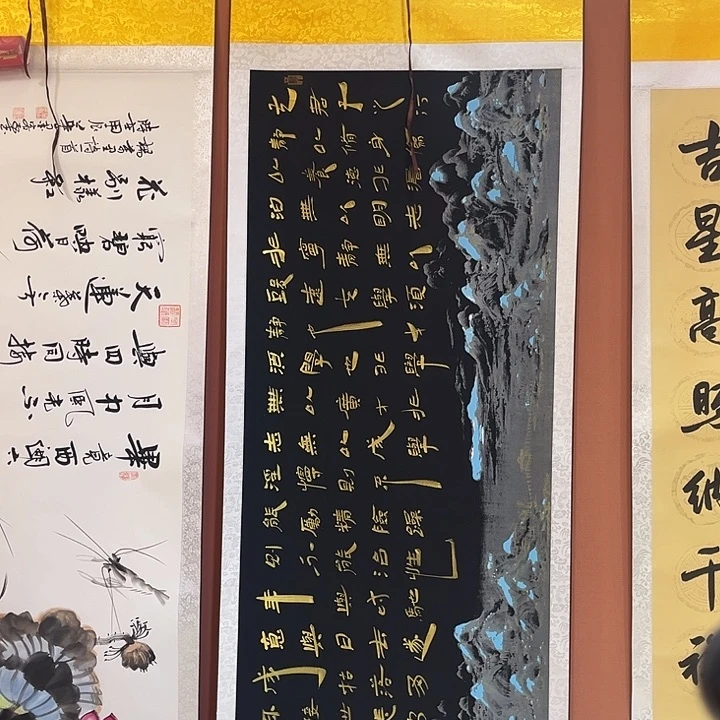 畢竟西湖六
月中風光不
與四時同接
天蓮葉無
窮碧映日荷
花別樣紅
楊萬里詩一首
夫君子之行
靜以修身儉
以養德非澹
泊無以明志
非寧靜無以
致遠夫學須
靜也才
須學也非學
無以廣才非
志無以成學
淫慢則不
能勵精險躁
則不能治性
年與時馳
意與日去遂
成枯落多
不接世悲
吉星高照納千祥